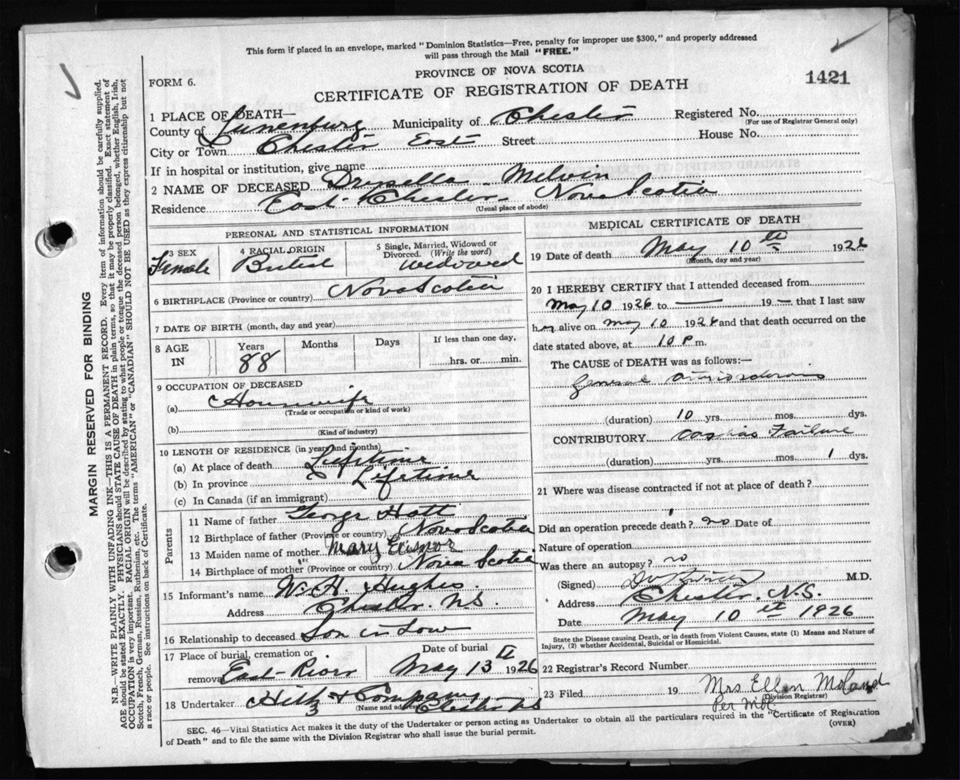 This form if placed in an envelope, marked "Dominion Statistics—Free, penalty for improper use $300," and properly addressed
will pass through the Mail "FREE."
PROVINCE OF NOVA SCOTIA
FORM 6.
CERTIFICATE OF REGISTRATION OF DEATH
1421
1 PLACE OF DEATH—
County of Lunenburg Municipality of Chester Registered No.
(For use of Registrar General only)
City or Town Chester East Street House No.
If in hospital or institution, give name
2 NAME OF DECEASED Drusella Melvin
Residence East Chester Nova Scotia
(Usual place of abode)
PERSONAL AND STATISTICAL INFORMATION
3 SEX Female
4 RACIAL ORIGIN British
5 Single, Married, Widowed or Divorced. (Write the word) widowed
6 BIRTHPLACE (Province or country) Nova Scotia
7 DATE OF BIRTH (month, day and year)
8 AGE IN Years 88 Months Days If less than one day, hrs. or min.
9 OCCUPATION OF DECEASED
(a) Housewife
(Trade or occupation or kind of work)
(b)
(Kind of industry)
10 LENGTH OF RESIDENCE (in years and months)
(a) At place of death Lifetime
(b) In province Lifetime
(c) In Canada (if an immigrant)
Parents
11 Name of father George Hatt
12 Birthplace of father (Province or country) Nova Scotia
13 Maiden name of mother Mary Eleisnor
14 Birthplace of mother (Province or country) Nova Scotia
15 Informant's name W. H. Hughes.
Address Chester. N.S.
16 Relationship to deceased Son in Law
17 Place of burial, cremation or removal East River Date of burial May 13 1926
18 Undertaker Hiltz & Company Chester NS
(Name and address)
MEDICAL CERTIFICATE OF DEATH
19 Date of death May 10th 1926
(Month, day and year)
20 I HEREBY CERTIFY that I attended deceased from
May 10 1926 to — 19— that I last saw
her alive on May 10 1926 and that death occurred on the
date stated above, at 10 P m.
The CAUSE OF DEATH was as follows:—
General
(duration) 10 yrs. mos. dys.
CONTRIBUTORY Failure
(duration) yrs. mos. 1 dys.
21 Where was disease contracted if not at place of death?
Did an operation precede death? no Date of
Nature of operation
Was there an autopsy? no
(Signed) M.D.
Address Chester. N.S.
Date May 10th 1926
State the Disease causing Death, or in death from Violent Causes, state (1) Means and Nature of
Injury, (2) whether Accidental, Suicidal or Homicidal.
22 Registrar's Record Number
23 Filed 19 Mrs Ellen
(Division Registrar)
Per
SEC. 46—Vital Statistics Act makes it the duty of the Undertaker or person acting as Undertaker to obtain all the particulars required in the "Certificate of Registration
of Death" and to file the same with the Division Registrar who shall issue the burial permit.
(OVER)
MARGIN RESERVED FOR BINDING
N.B.—WRITE PLAINLY WITH UNFADING INK—THIS IS A PERMANENT RECORD. Every item of information should be carefully supplied.
AGE should be stated EXACTLY. PHYSICIANS should STATE CAUSE OF DEATH in plain terms, so that it may be properly classified. Exact statement of
OCCUPATION is very important. RACIAL ORIGIN will be described by stating to what people or tongue the deceased person belonged, whether English, Irish,
Scotch, French, German, Russian, Ruthenian, etc. The terms "AMERICAN" or "CANADIAN" SHOULD NOT BE USED as they express citizenship but not
a race or people. See instructions on back of Certificate.